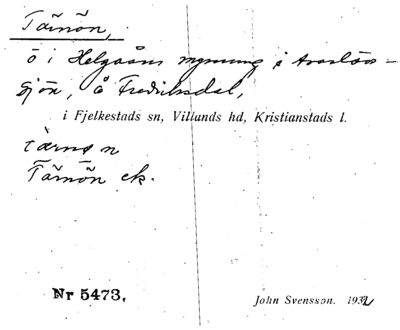 Tärnön,
ö i Helgeåns mynning i Araslövs-
sjön, å Fredriksdal,
i Fjelkestads sn, Villands hd, Kristianstads l.
tärnen
Tärnön ek.
Nr 5473,
John Svensson. 1932